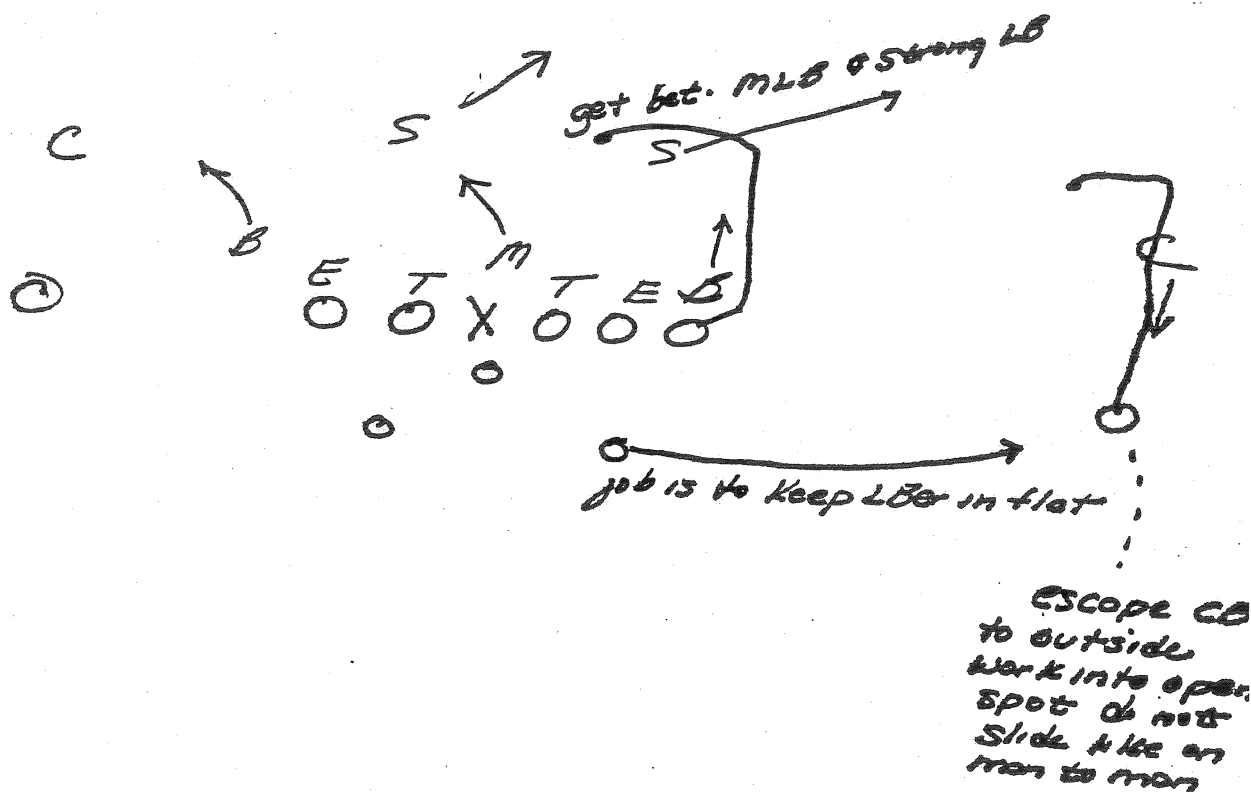 get bet. MLB & Strong LB
C S S
B M C
E T X T E B
job is to keep LBer in flat
escape CB
to outside
work into open
spot do not
slide like on
man to man